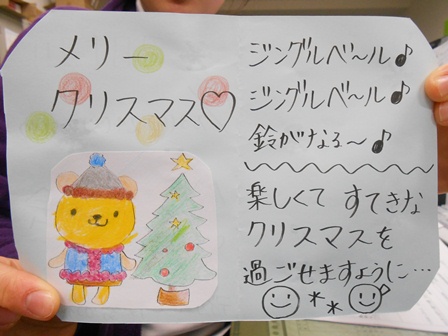 メリー
クリスマス♡
ジングルベ～ル♪
ジングルベ～ル♪
鈴がなる～♪
楽しくて すてきな
クリスマスを
過ごせますように…